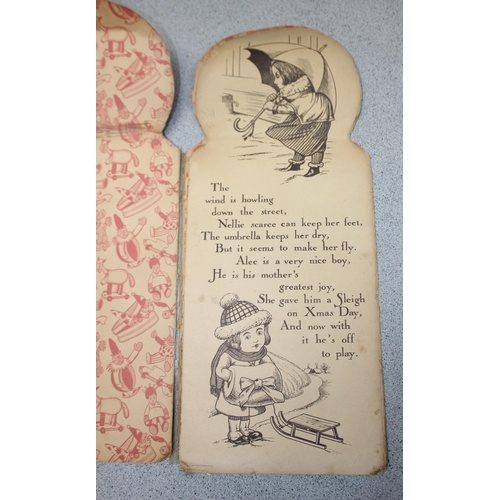 The
wind is howling
down the street,
Nellie scarce can keep her feet,
The umbrella keeps her dry,
But it seems to make her fly.
Alec is a very nice boy,
He is his mother's
greatest joy,
She gave him a Sleigh
on Xmas Day,
And now with
it he's off
to play.